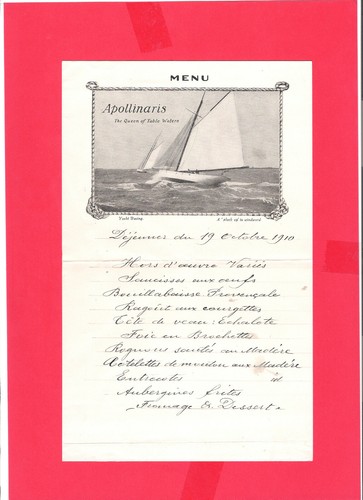 MENU
Apollinaris
The Queen of Table Waters
Yacht Racing.
Déjeuner du 19 Octobre 1910
Hors d'œuvre Variés
Saucisses aux œufs
Bouillabausse Provençale
Ragoût aux courgettes
Tête de veau Echalote
Foie en Brochettes
Rognons sautés au Madère
Côtelettes de mouton aux Madère
Entrecotes id
Aubergines frites
Fromage & Dessert